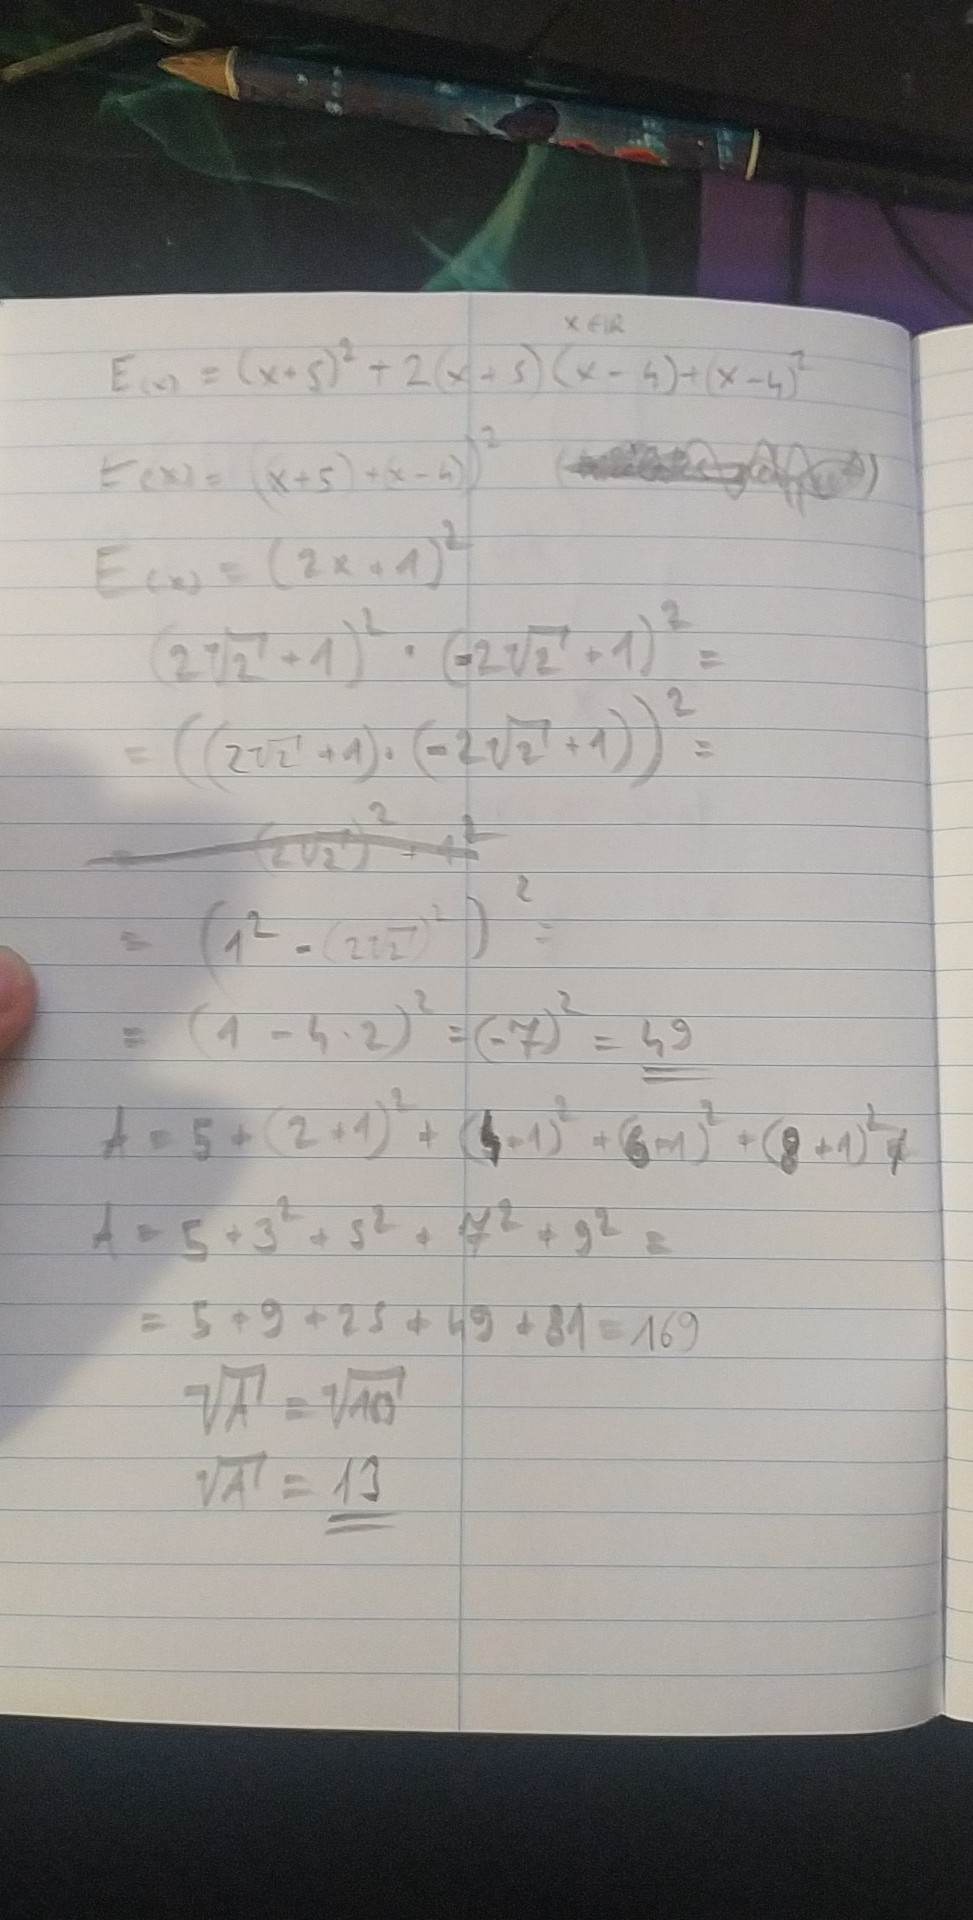 x ∈ ℝ
E(x) = (x+5)² + 2(x+5)(x-4)+(x-4)²
E(x) = (x+5)+(x-4))²
E(x) = (2x+1)²
(2√2+1)² · (-2√2+1)² =
= ((2√2+1)·(-2√2+1))² =
= (2√2)² + 1²
= (1² - (2√2)²)² =
= (1 - 4·2)² = (-7)² = 49
A = 5 + (2+1)² + (4+1)² + (6+1)² + (8+1)²
A = 5 + 3² + 5² + 7² + 9² =
= 5 + 9 + 25 + 49 + 81 = 169
√A = √169
√A = 13